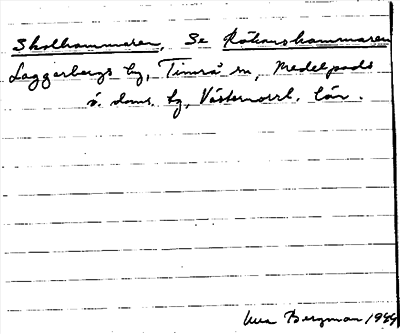 Skolhammaren, Se Råkarshammaren
Laggarbergs by, Timrå sn, Medelpads
ö. doms. hg, Västernorrl. län.
Bergman 1944